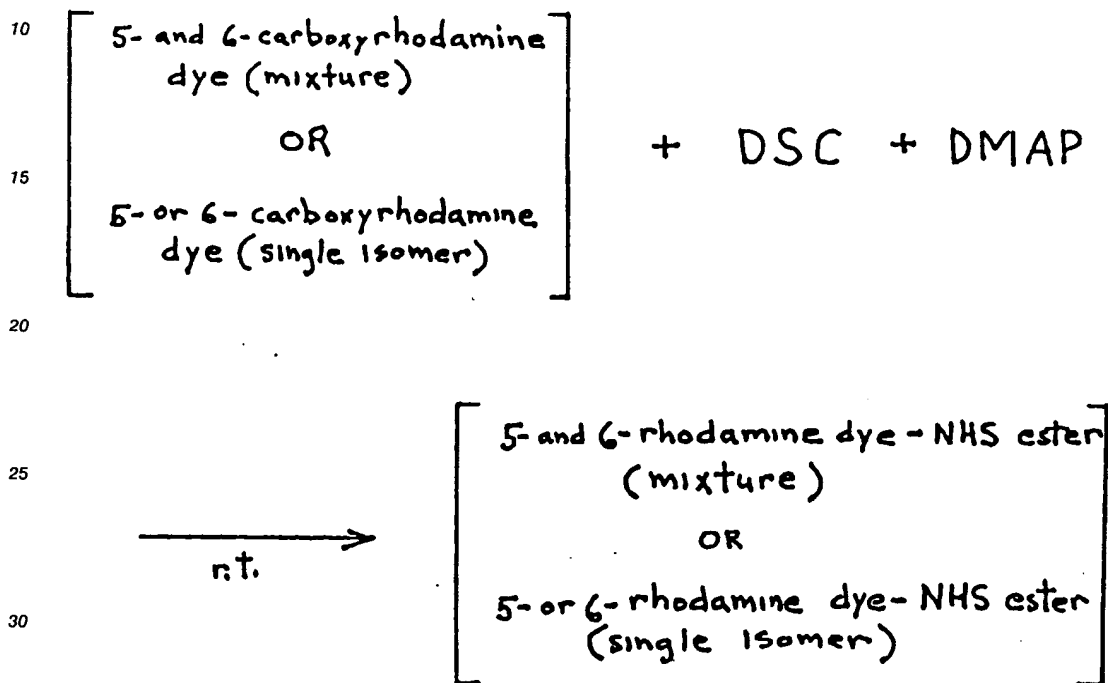 10
5- and 6-carboxyrhodamine
dye (mixture)
OR
15
5- or 6- carboxyrhodamine
dye (single isomer)
+ DSC + DMAP
20
r.t.
25
5- and 6- rhodamine dye - NHS ester
(mixture)
OR
30
5- or 6- rhodamine dye - NHS ester
(single isomer)